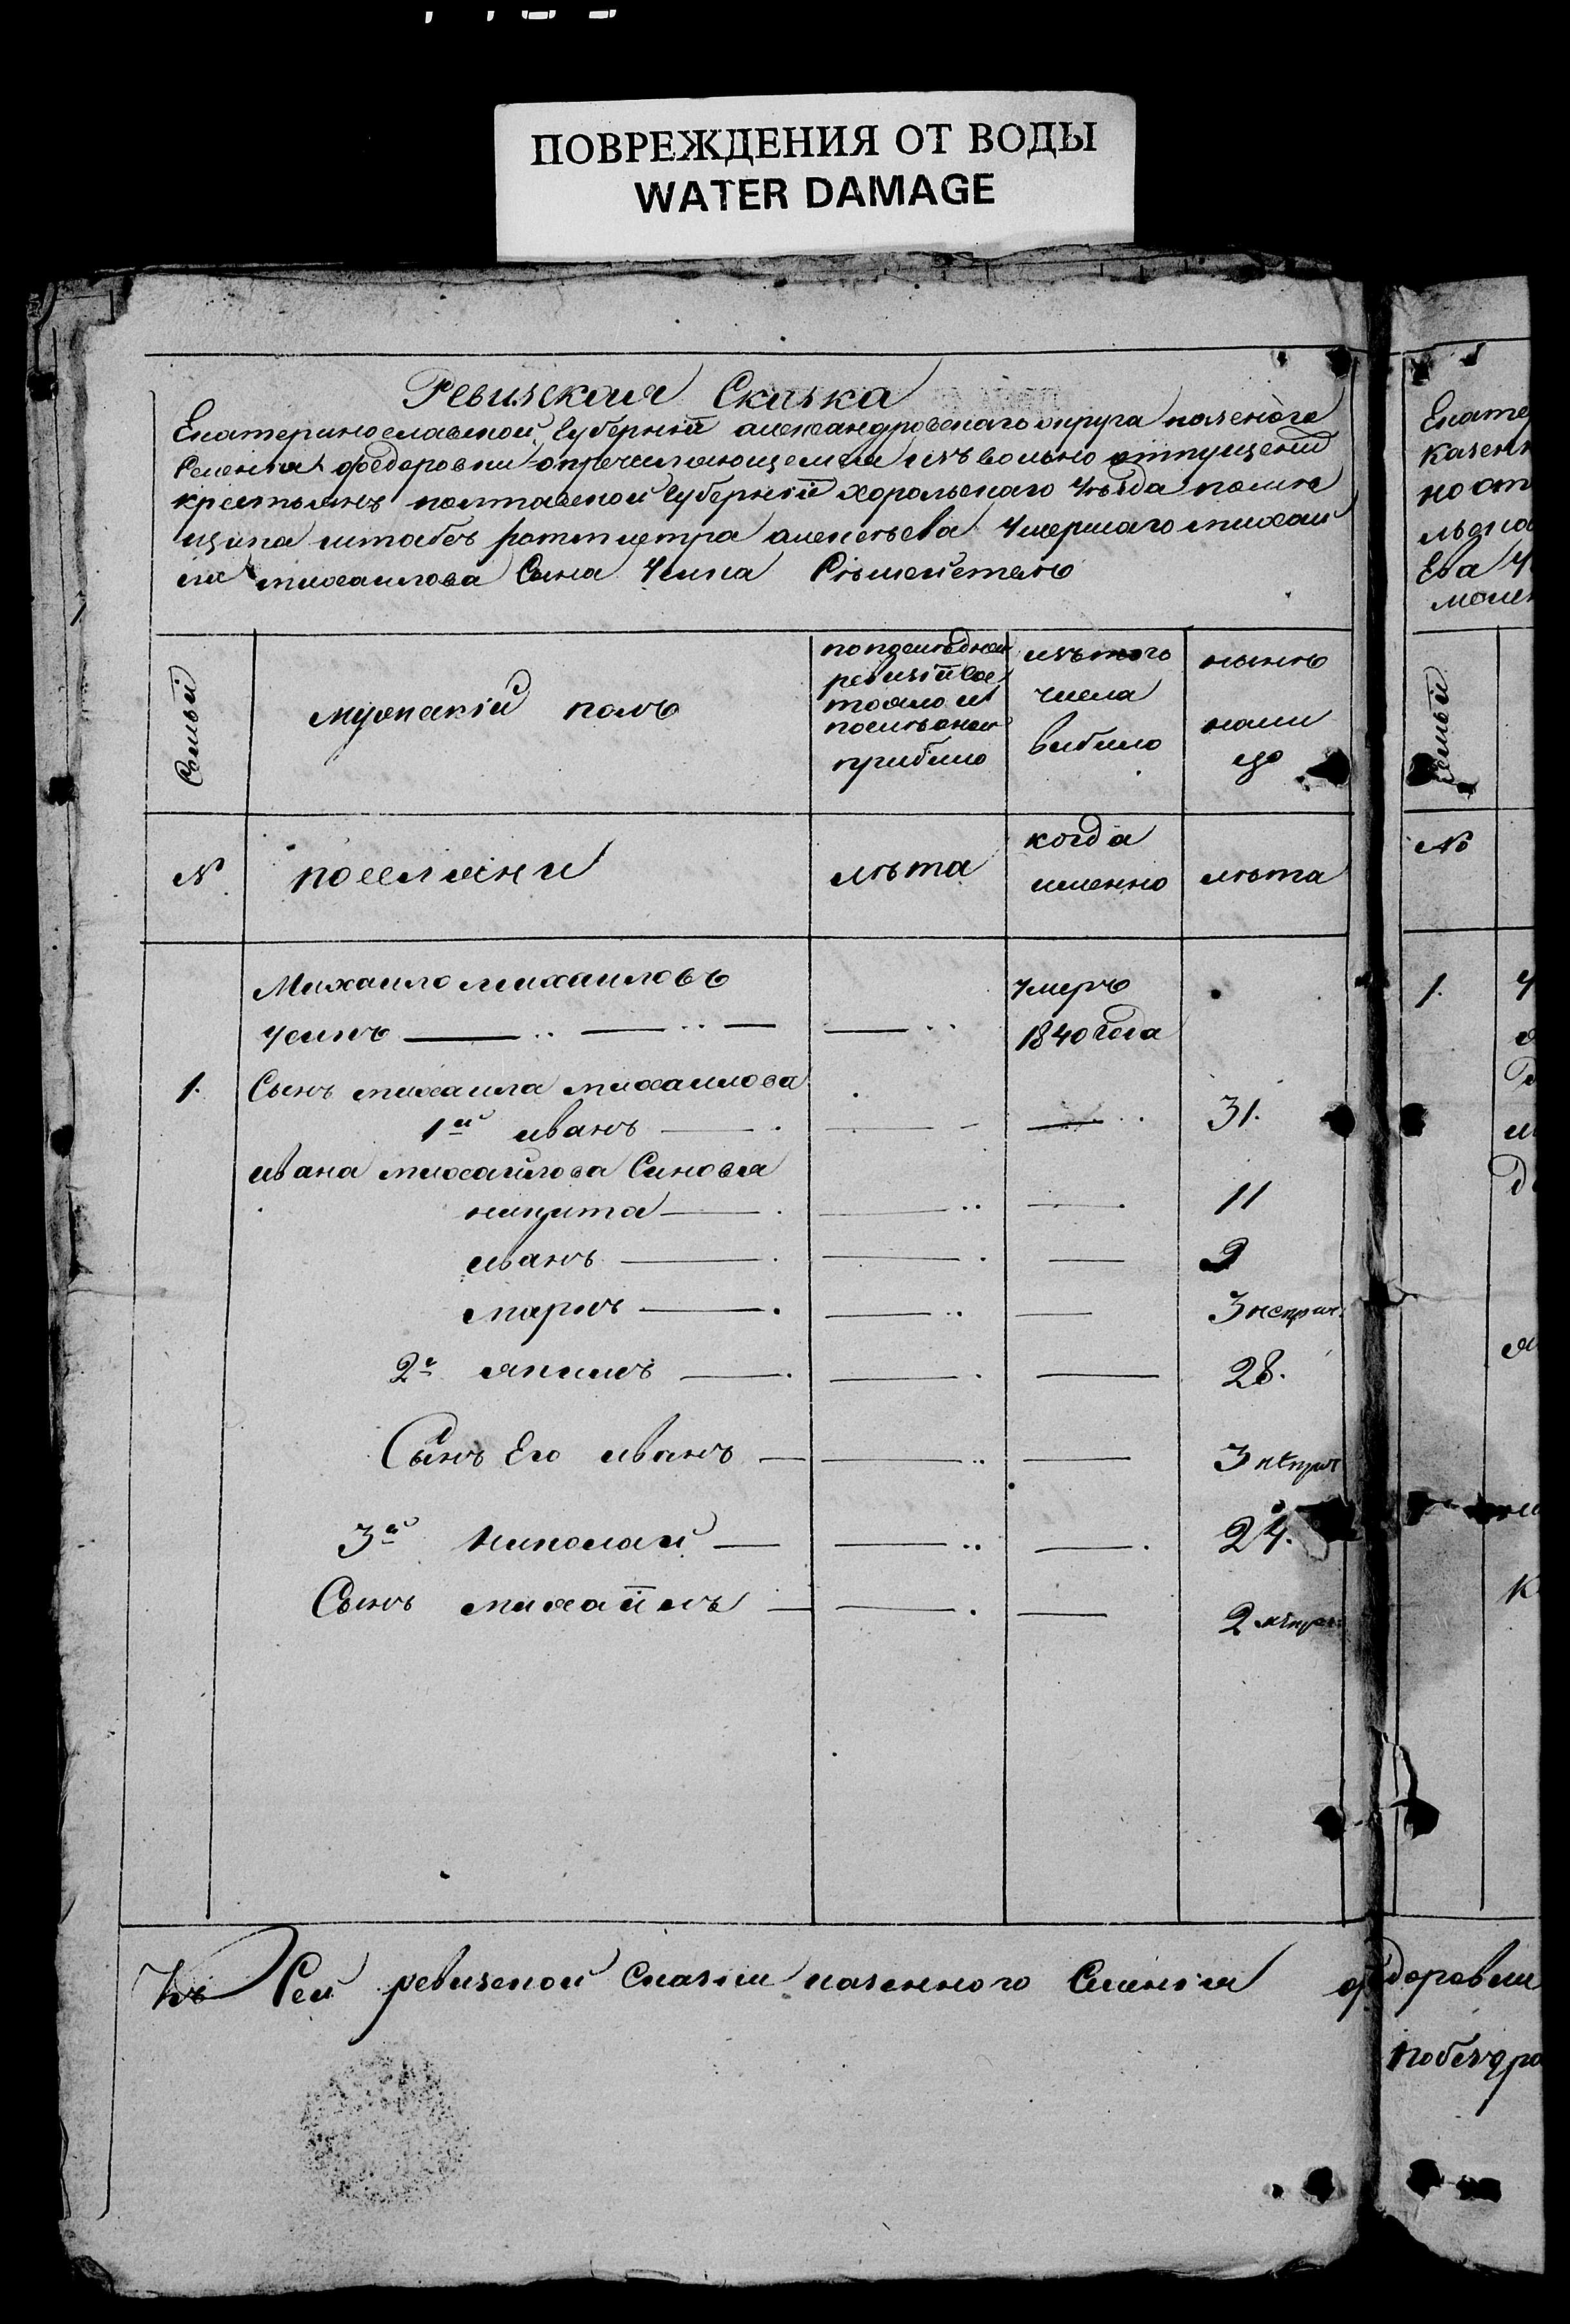 ПОВРЕЖДЕНИЯ ОТ ВОДЫ
WATER DAMAGE
Ревизская Сказка
Екатеринославской Губернiи александровскаго округа казеного
Селенiя федоровки опричисляющемся изъ вольно отпущенiй
крестьянъ полтавской Губернiи хорольскаго Уѣзда помѣ
щика штабсъ ротмистра алексѣева Умершаго михаи
ла михаилова Сына Усика Съмействъ
Семьи
мужескiй полъ
по последней
ревизiи сос
тояло и
после оней
прибыло
изъ того
числа
выбыло
нынѣ
нали
цо
N
поселяни
лѣта
когда
именно
лѣта
Михаило михаиловъ
Усикъ
умеръ
1840 года
1. Сынъ михаила михаилова
1й иванъ 31.
ивана михайлова Синовья
никита 11
иванъ 9
маркъ 3
2й якимъ 28.
Сынъ Его иванъ 3
3й николай 24.
Сынъ михайилъ 2
Къ Сей ревизской Сказки казенного Селенiя федоровки
Екатер
казенн
но отп
льско
Ева У
Семьи
№
1.